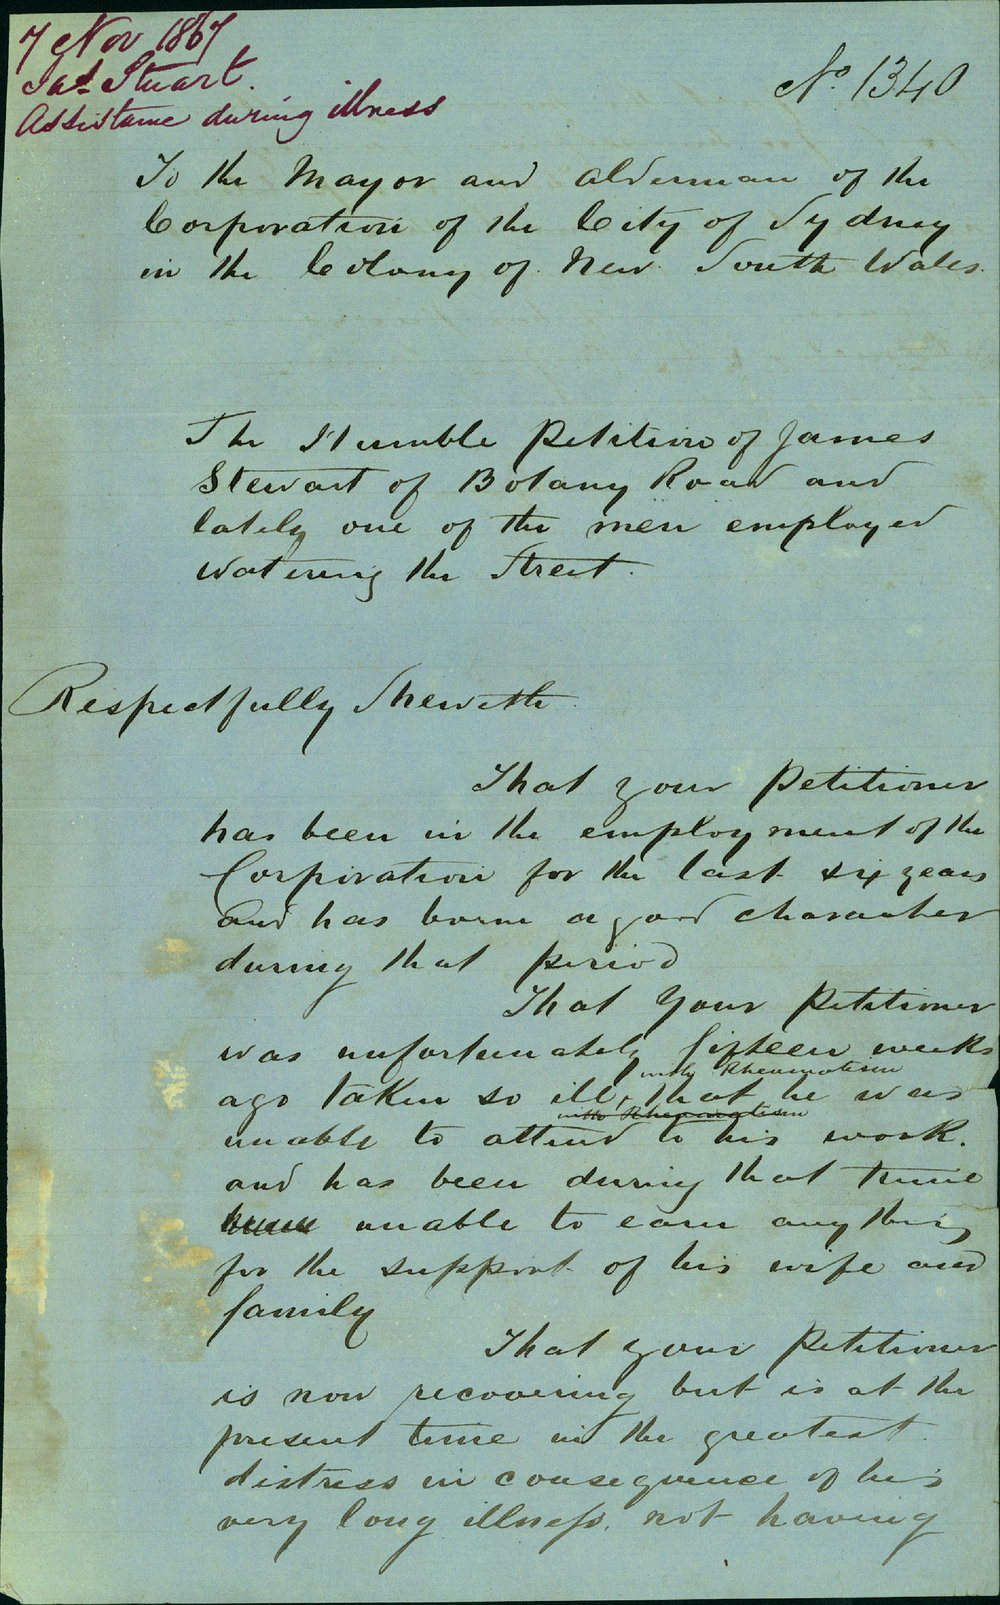 7 Nov 1867
Jas Stuart.
Assistance during illness
No. 1340
To the Mayor and alderman of the
Corporation of the City of Sydney
in the Colony of New South Wales.
The Humble Petition of James
Stewart of Botany Road and
lately one of the men employed
watering the Street.
Respectfully Sheweth
That your Petitioner
has been in the employment of the
Corporation for the last six years
and has borne a good character
during that period
That Your Petitioner
was unfortunately fifteen weeks
with Rheumatism
ago taken so ill, that he was
with Rheumatism
unable to attend to his work.
and has been during that time
unable to earn any thing
for the support of his wife and
family
That your Petitioner
is now recovering but is at the
present time in the greatest
distress in consequence of his
very long illness, not having